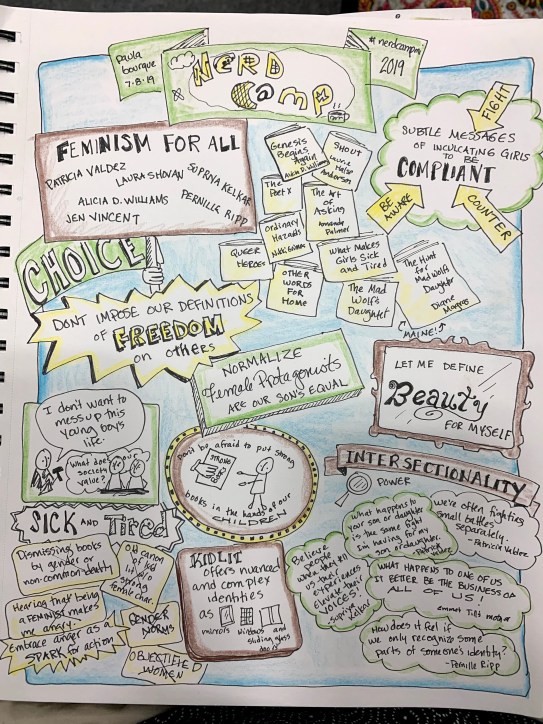 paula
bourque
7-8-19
NERD
CAMP
#nerdcampmi
2019
FEMINISM FOR ALL
PATRICIA VALDEZ
LAURA SHOVAN
SUPRIYA KELKAR
ALICIA D. WILLIAMS
PERNILLE RIPP
JEN VINCENT
Genesis
Begins
Again
Alicia D. Williams
SHOUT
Laurie
Halse
Anderson
The
Poet X
The Art
of
Asking
Amanda
Palmer
Ordinary
Hazards
Nikki Grimes
QUEER
HEROES
OTHER
WORDS
FOR
HOME
What Makes
Girls Sick
and Tired
The Mad
Wolf's
Daughter
The Hunt
for
Mad Wolf's
Daughter
Diane
MAINE!
FIGHT
SUBTLE MESSAGES
OF INCULCATING GIRLS
TO BE
COMPLIANT
BE
AWARE
COUNTER
CHOICE
DON'T IMPOSE OUR DEFINITIONS
OF FREEDOM
on others
NORMALIZE
Female Protagonists
ARE OUR SON'S EQUAL
LET ME DEFINE
Beauty
FOR MYSELF
I don't want to
mess up this
young boy's
life.
What does our
society
value?
Don't be afraid to put strong
STRONG
books in the hands of our
CHILDREN
INTERSECTIONALITY
POWER
What happens to
your son or daughter
is the same fight
I'm having for my
son or daughter.
we're often fighting
small battles
separately.
-Patricia Valdez
Believe
people
when they tell
us their
experiences
Elevate their
voices!
supriya
kelkar
WHAT HAPPENS TO ONE OF US
IT BETTER BE THE BUSINESS OF
ALL OF US!
emmet Till's mother
How does it feel if
we only recognize some
parts of someone's identity?
-Pernille Ripp
SICK AND TIRED
Dismissing books
by gender or
non-common identity
Old canon
strong
female char.
Hearing that being
a FEMINIST makes
me angry.
Embrace anger as a
SPARK for action
GENDER
NORMS
OBJECTIFIED
WOMEN
KIDLIT
offers nuanced
and complex
identities
as
mirrors windows and
sliding glass
doors